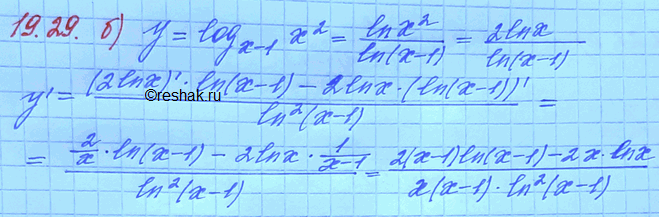 19.29. б) y = log_{x-1} x² = \frac{ln x²}{ln(x-1)} = \frac{2lnx}{ln(x-1)}
y' = \frac{(2lnx)' · ln(x-1) - 2lnx · (ln(x-1))'}{ln²(x-1)} =
©reshak.ru
= \frac{\frac{2}{x} · ln(x-1) - 2lnx · \frac{1}{x-1}}{ln²(x-1)} = \frac{2(x-1)ln(x-1) - 2x · lnx}{x(x-1) · ln²(x-1)}